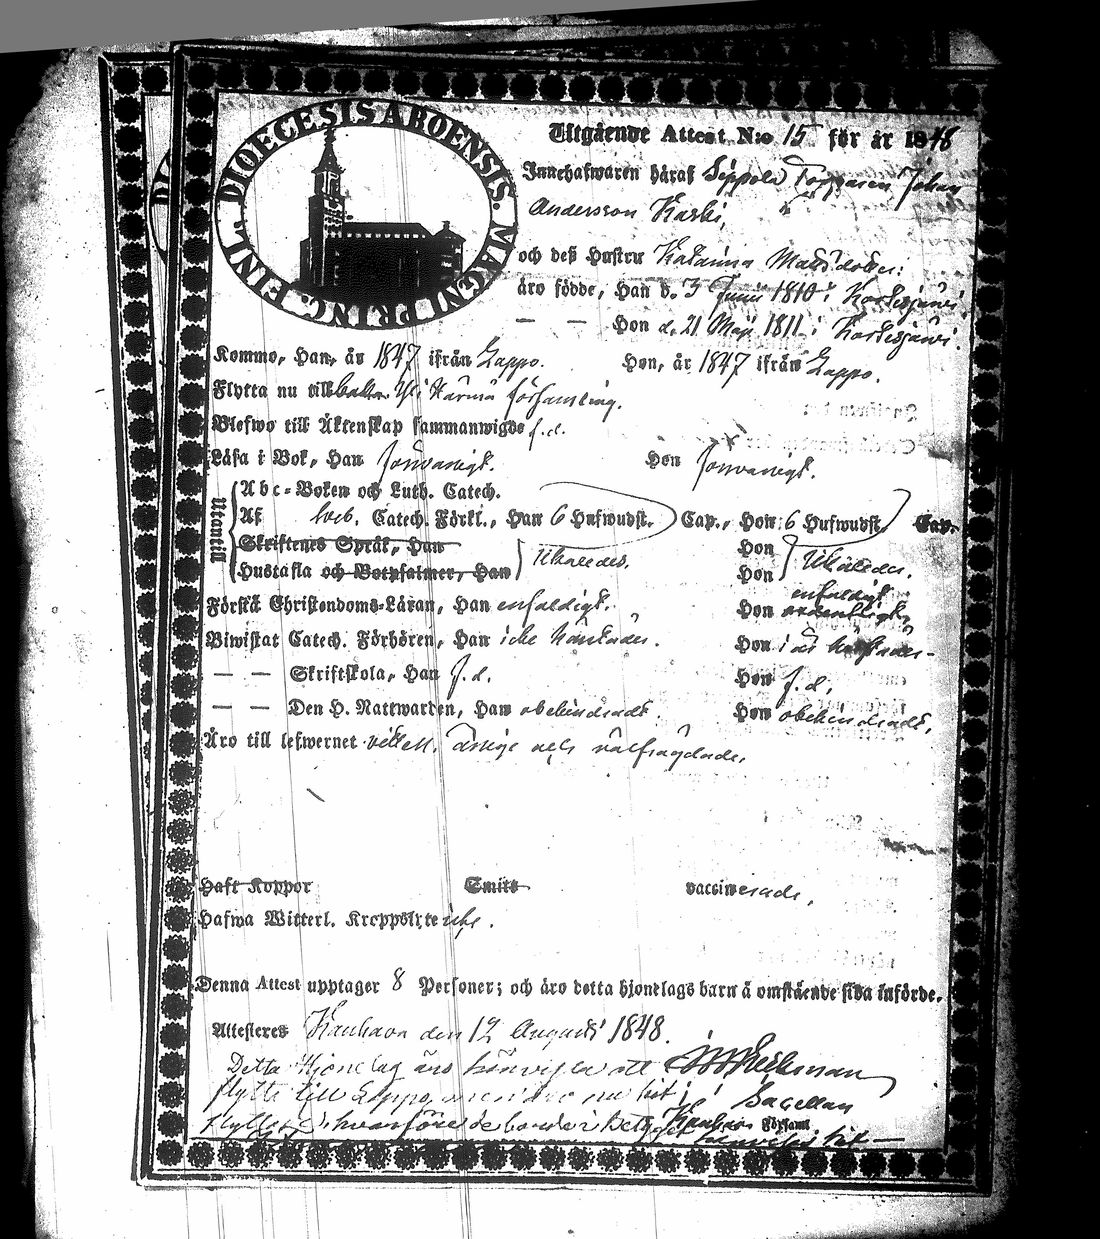 FINL. DIOECESIS ABOENSIS. MAGNI PRINC.
Utgående Attest N:o 15 för år 1848
Innehafwaren häraf Sippola Torparen Johan
Andersson Karhi,
och deß Hustru Katarina Mattsdotter:
äro födde, Han d. 3 Junii 1810 i Kortesjärvi
— — Hon d. 21 Maji 1811 i Kortesjärvi.
Kommo, Han, år 1847 ifrån Lappo. Hon, år 1847 ifrån Lappo.
Flytta nu till Härmä församling.
Blefwo till Äktenskap sammanwigde f.d.
Läsa i Bok, Han försvarligt. Hon försvarligt.
Utantill
Abc-Boken och Luth. Catech.
Af Sveb. Catech. Förkl., Han 6 Hufwudst. Cap., Hon 6 Hufwudst. Cap.
Skriftenes Språk, Han Hon
Hustafla och Botpsalmer, Han Hon
Första Christendoms-Läran, Han enfaldigt. Hon enfaldigt
Biwistat Catech. Förhören, Han icke Hon
— — Skriftskola, Han f.d. Hon f.d.
— — Den H. Nattwarden, Han obehindradt Hon obehindradt.
Äro till lefwernet välfrägdade.
Haft Koppor Smitt vaccinerade,
Hafwa Witterl. Kroppslyte icke.
Denna Attest upptager 8 Personer; och äro detta hjonelags barn å omstående sida införde.
Attesteras Kauhava den 12 Augusti 1848.
Detta Hjonelag äro att
flytta till Lappo, men nu hit Sacellan
Kauhava Församl.